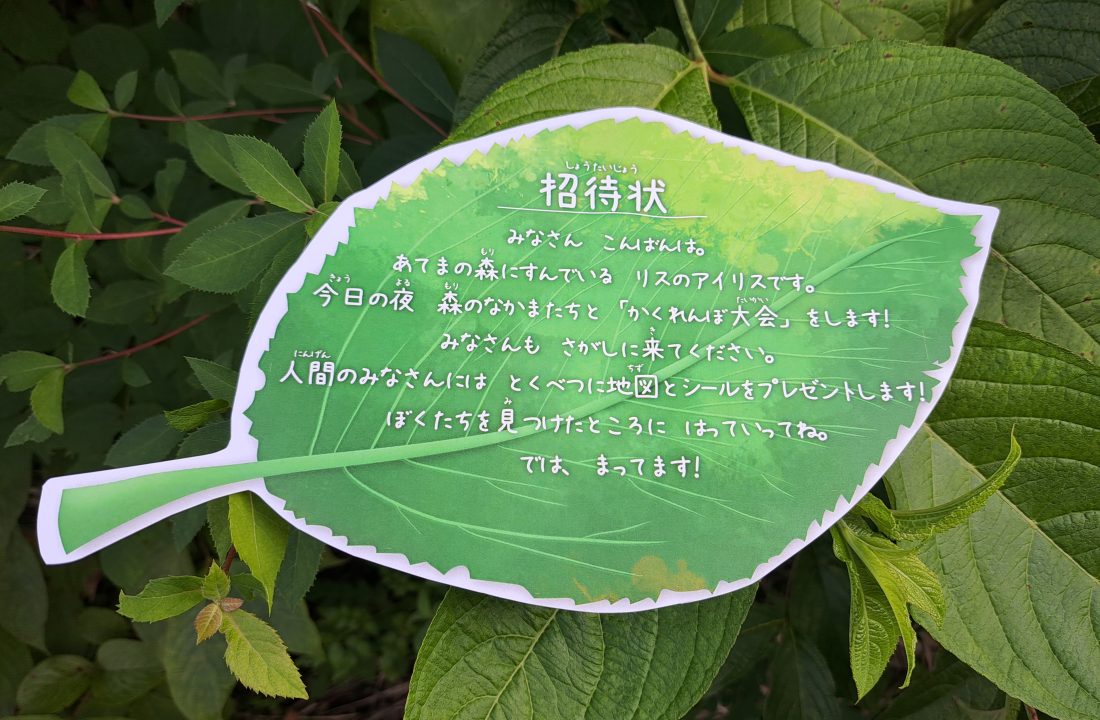 しょうたいじょう
招待状
みなさん　こんばんは。
もり
あてまの森にすんでいる　リスのアイリスです。
きょう　よる　もり　たいかい
今日の夜　森のなかまたちと　「かくれんぼ大会」をします!
き
みなさんも　さがしに来てください。
にんげん　ちず
人間のみなさんには　とくべつに地図とシールをプレゼントします!
み
ぼくたちを見つけたところに　はっていってね。
では、まってます!